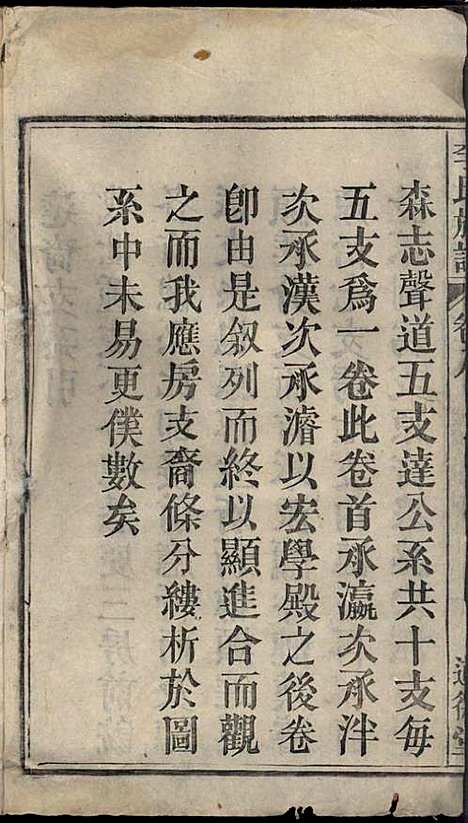 李氏族譜 卷八
森志聲道五支達公系共十支每
五支為一卷此卷首承瀛次承泮
次承漢次承濬以宏學殿之後卷
卽由是叙列而終以顯進合而觀
之而我應房支裔條分縷析於圖
系中未易更僕數矣